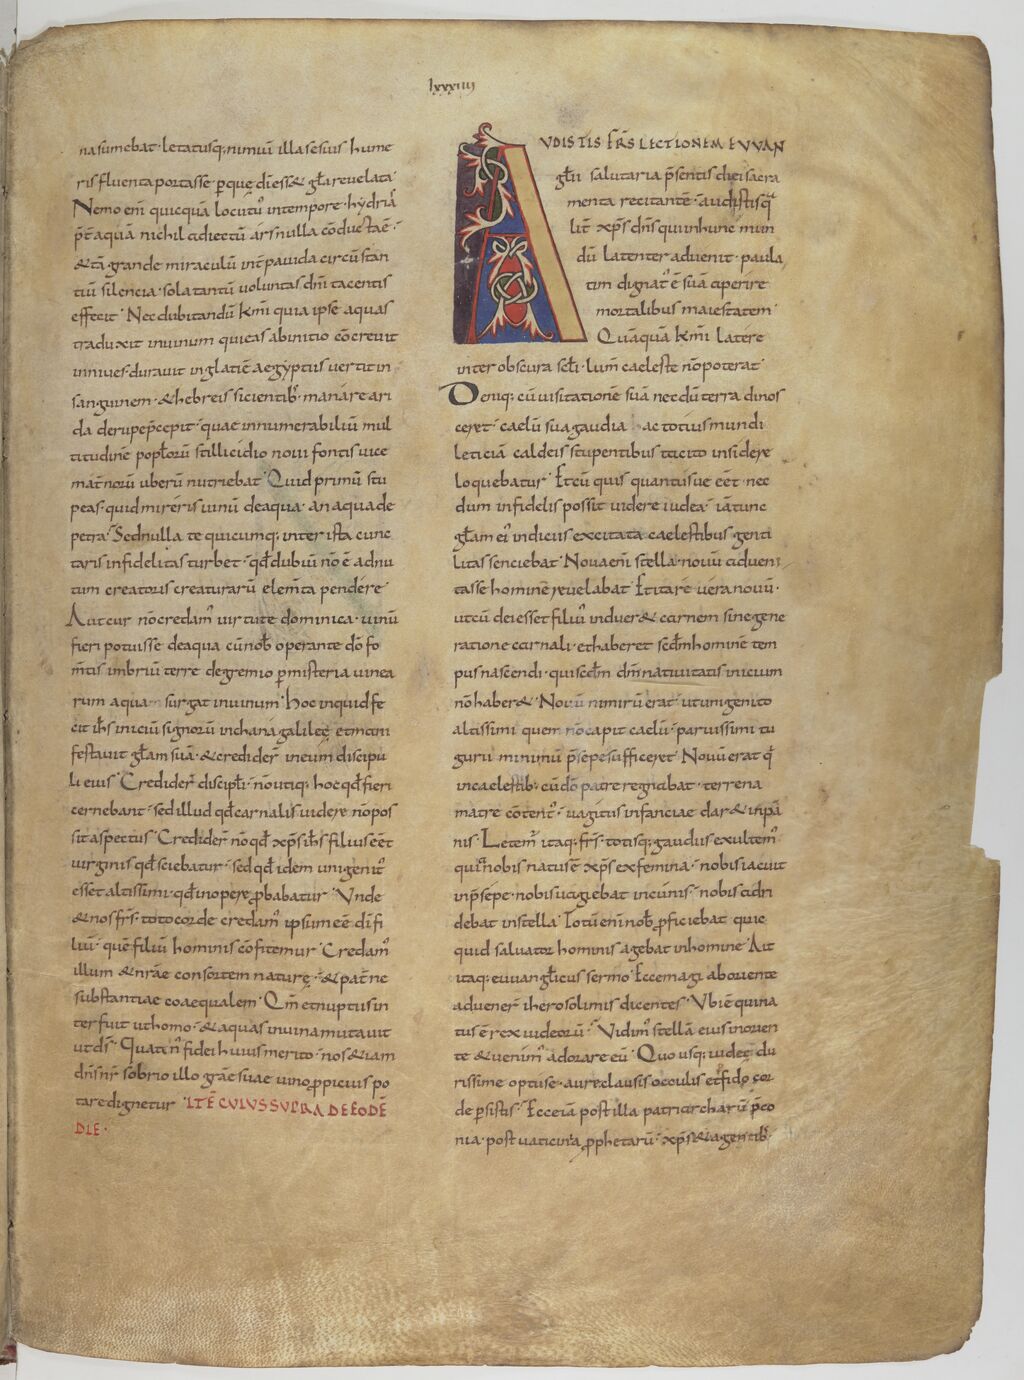 lxxxiiii
na sumebat· letatusq; nimiū illaesesuis hume
ris fluenta portasse· pquę dīess& gła revelata
Nemo eni quicquā locutus intempore· hydria
p̄t aquā nichil adiectū arsnulla cōductaē·
&tā grande miraculū int pavida circūstan
tiū silencia· sola tantū voluntas dn̄i tacentis
effecit· Nec dubitandū kmi quia ipse aquas
traduxit invinum qui eas abinitio cōcrevit
innives· duravit inglatiē aegyptiis vertit in
sanguinem· & hebreis sicientib; manare ari
da derupe p̄cepit· quae innumerabiliū mul
titudinē poplorū stillicidio novi fontis vice
matnorū uberū nutriebat· Quid primū stu
peas· quid mireris vinū deaqua· an aqua de
petra· Sednulla te quicumq; inter ista cunc
taris infidelitas turbet· qd̄ dubiū nō ē adnu
tum creatoris creaturarū elemta pendere·
Aut cur nō credam virtute dominica· vinū
fieri potuisse deaqua cū nob operante dō fo
mtis imbriū terre degremio p misteria vinea
rum aqua surgat invinum· Hoc inquid fe
cit ihs iniciū signorū inchana galileę etmani
festavit głam suā· & credider ineum discipu
li eius· Credider discipli· nō utiq; hoc qd̄ fieri
cernebant· sed illud qd̄ carnalis videre nō pos
sit aspectus· Credider nō qd̄ xp̄s ihs filius eēt
virginis qd̄ sciebatur· sed qd̄ idem unigenit
esset altissimi· qd̄ inopere p̱babatur· Unde
& nos frs· toto corde credam ipsum eē di fi
liū· quē filiū hominis cōfitemur· Credam
illum & nrae consortem naturę· & patne
substantiae coaequalem· Qm̄ et nuptiis in
terfuit uthomo· & aquas invina mutavit
utds· Quatin fidei huius merito· nos & iam
dn̄s nr sobrio illo grae suae vino p̱picius po
tare dignetur· ITĒ CUIUS SUPRA DE EODĒ
DIE·
AUDISTIS FRS LECTIONEM EUUAN
głii salutaria p̄sentis diei sacra
menta recitante· audistisq
lic& xp̄s dn̄s qui inhunc mun
dū latenter advenit· paula
tim dignat ē suā aperire
mortalibus maiestatem·
Quāquā kmi latere
inter obscura secli· lum caeleste nō poterat·
Deniq; cū visitationē suā necdū terra dinos
ceret· caelū sua gaudia ac totius mundi
leticiā caldeis stupentibus tacito insidere
loquebatur· Et cū quis quantusue eēt· nec
dum infidelis possit videre iudea· iā tunc
głam ei indiciis excitata caelestibus· genti
litas senciebat· Nova eni stella· novū adven
tasse hominē revelabat· Et itare vera novū·
ut cū dei esset filiū· induer& carnem sine gene
ratione carnali· et haberet scdm hominē tem
pus nascendi· qui scdm dn̄m nativitatis inicium
nō haber&· Novū nimirū erat· ut unigenito
altissimi quem nō capit caelū· parvissimi tu
gurii minimū p̄sepe sufficeret· Novū erat q̄
incaelestib; cū dō patre regnabat· terrena
matre cōtent· vagitus infanciae dar& inpā
nis· Letem itaq; frs· totisq; gaudiis exultem
quia nobis natus ē xp̄s exfemina· nobis iacuit
inp̄sepe· nobis vagiebat incunis· nobis cladri
debat instella· Totū eni nob p̱ficiebat· quic
quid salvator hominis agebat inhomine· Ait
itaq; evangelicus sermo· Ecce magi ab oriente
advener iherosolimis dicentes· Ubi ē qui na
tus ē rex iudeorū· Vidim stellā eius inorien
te & venim adorare eū· Quo usq; iudeę du
rissime optuse· aure clausis oculis et fidę cor
de p̱sistis· Ecce iā post illa patriarcharū p̄co
nia· post vaticinia p̱phetarū· xp̄s & ia gentib·